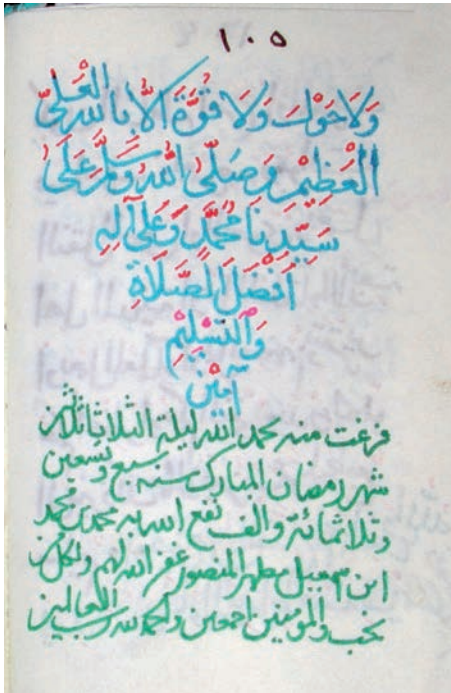 ١٠٥
وَلَا حَوْلَ وَلَا قُوَّةَ إِلَّا بِاللهِ الْعَلِيِّ
الْعَظِيْمِ وَصَلَّى اللهُ وَسَلَّمَ عَلَى
سَيِّدِنَا مُحَمَّدٍ وَعَلَى آلِهِ
أَفْضَلَ الصَّلَاةِ
وَالتَّسْلِيْمِ
آمِيْن
فرغت منه بحمد الله ليلة الثلاثا ثلاثين
شهر رمضان المبارك سنة سبع وتسعين
وثلاثمائة والف نفع الله به محمد بن محمد
ابن اسمعيل مطهر المنصور غفر الله لهم ولكل من
يحب والمؤمنين اجمعين والحمد لله رب العالمين